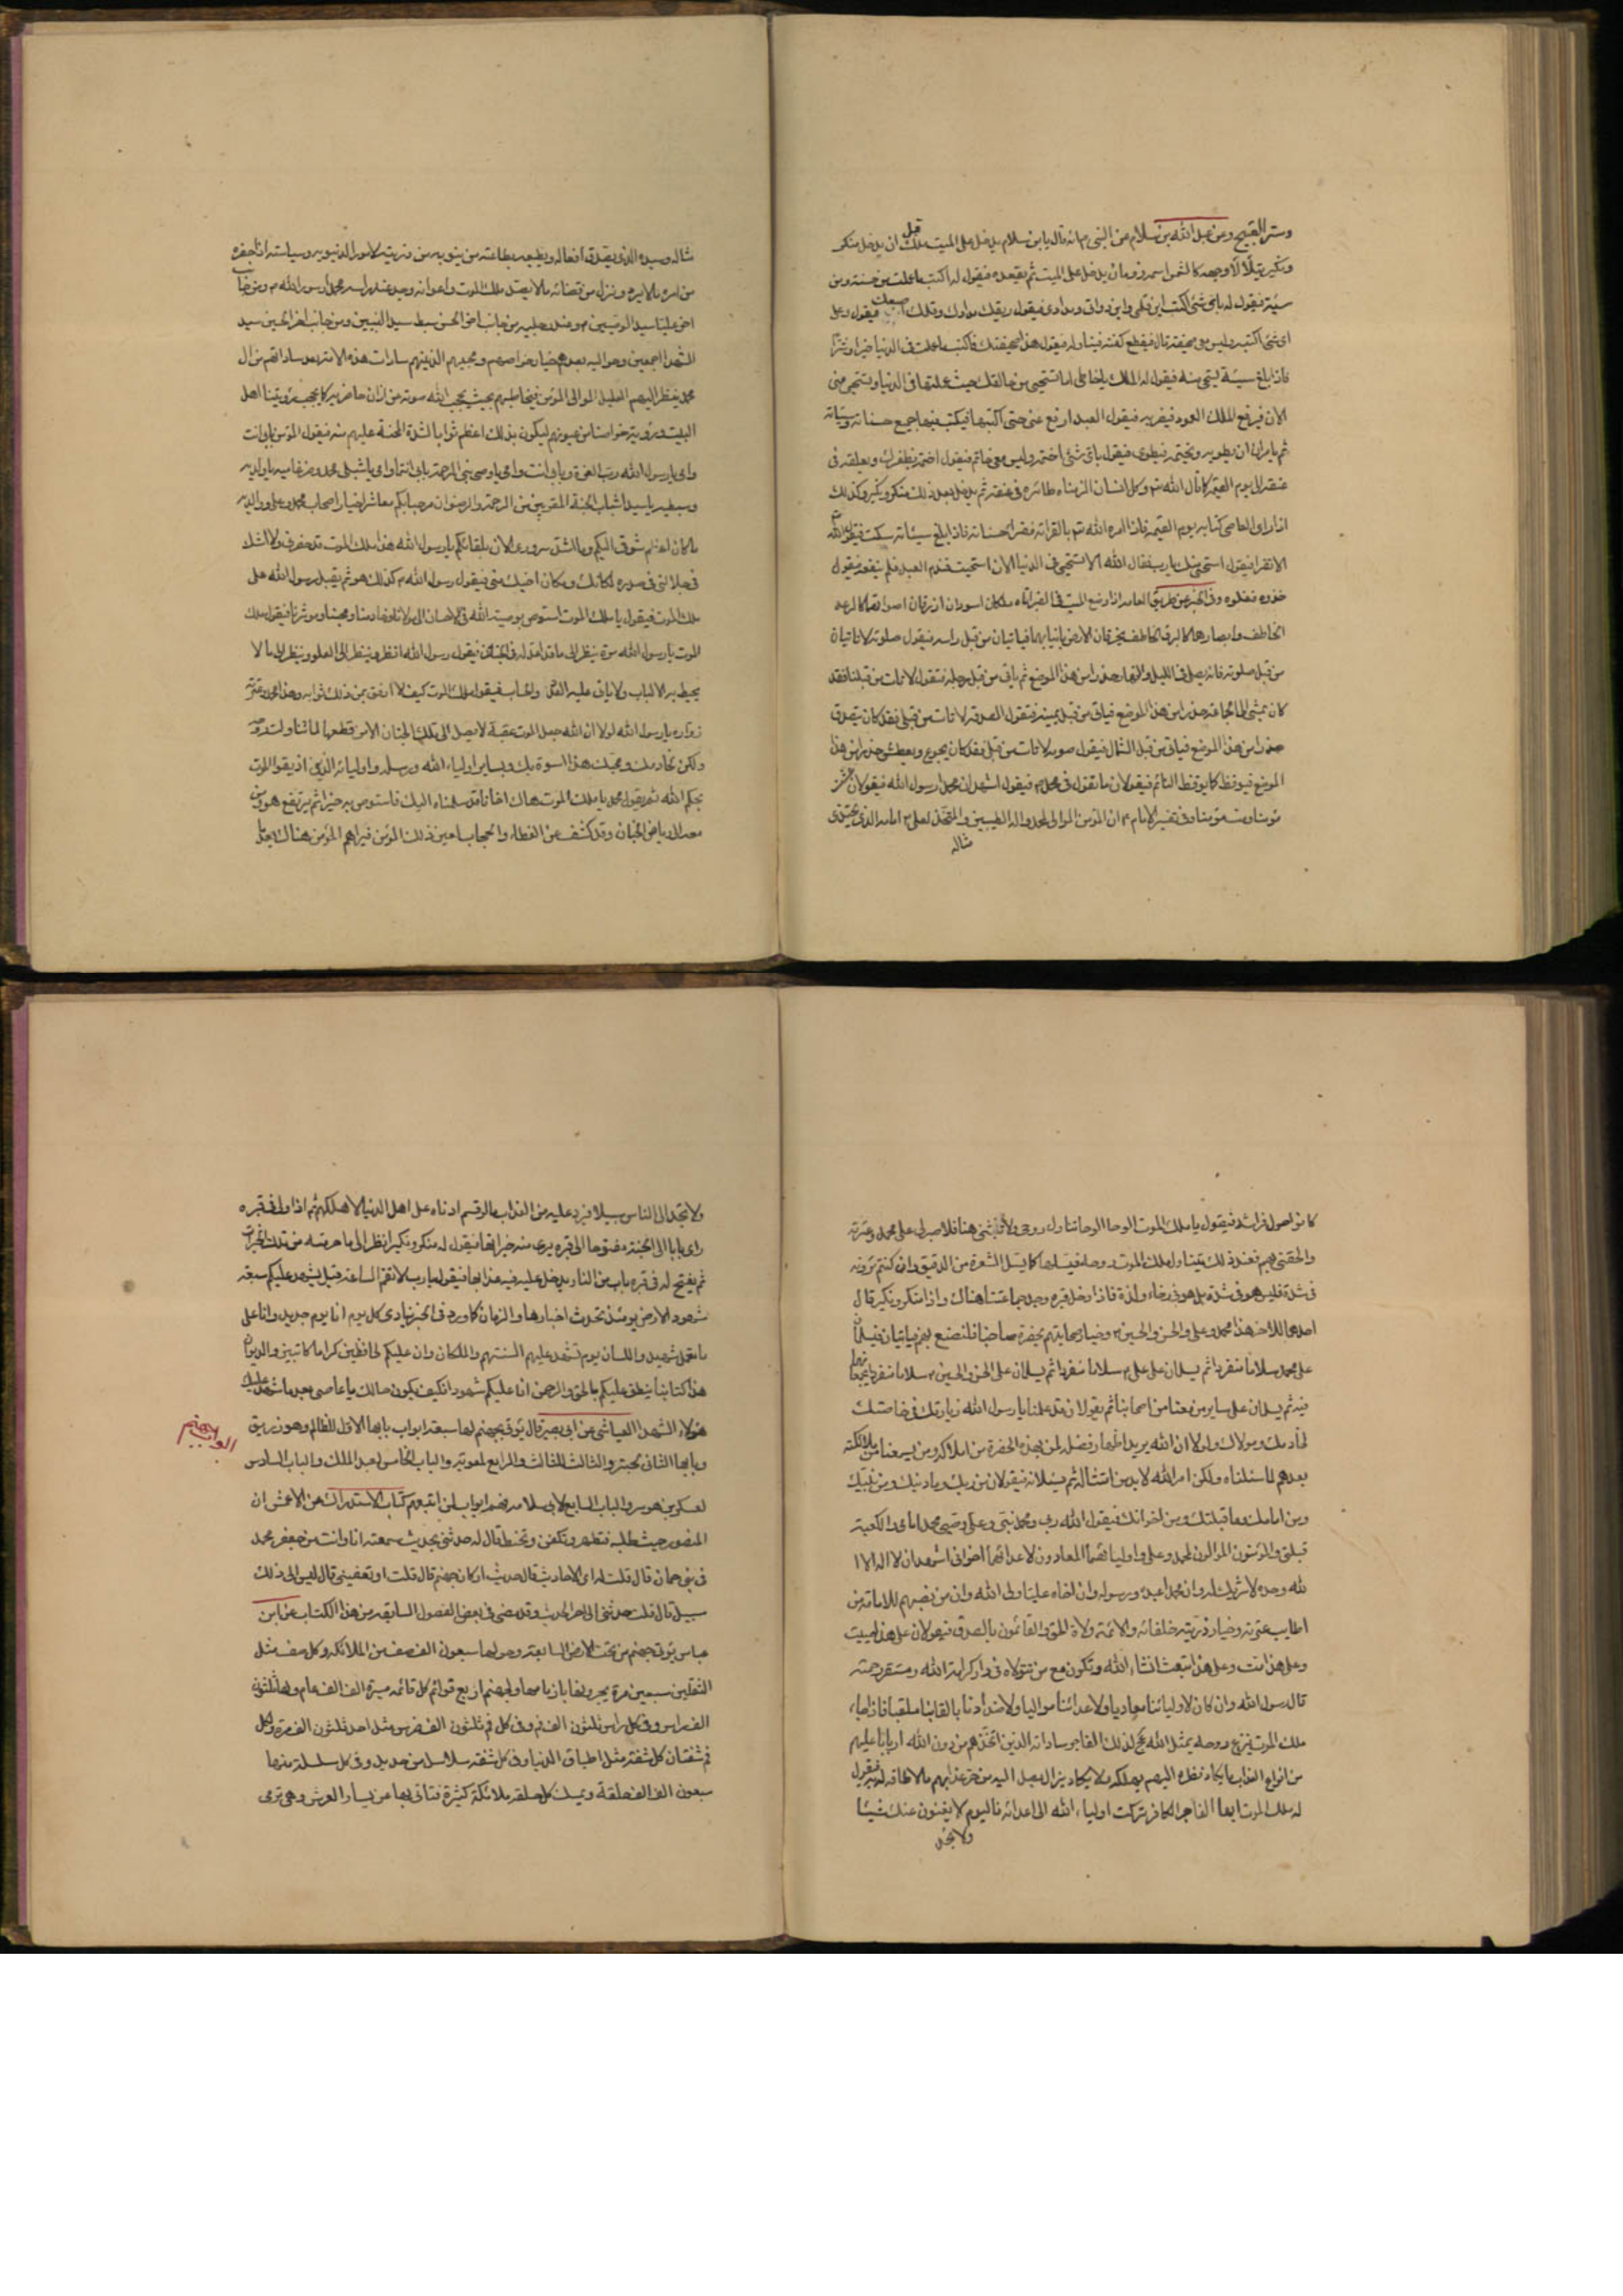 وستر القبيح وعن عبد الله بن سلام عن النبي ص انه قال يا بن سلام يدخل على الميت ملك قبل ان يدخل منكر
ونكير يتلألأ وجهه كالشمس اسمه رومان يدخل على الميت ثم يقعده فيقول له اكتب ما عملت من حسنة ومن
سيئة فيقول له باي شئ اكتب اين قلمي واين دواتي ومدادي فيقول ريقك مدادك وقلمك اصبعك فيقول وعلى
اي شئ اكتب وليس معي صحيفة قال فيقطع كفنه فيناوله فيقول هذا صحيفتك فاكتب ما عملت في الدنيا خيرا وشرا
فاذا بلغ سيئة يستحي منه فيقول له الملك يا خاطي اما تستحيي من خالقك حيث عملتها في الدنيا وتستحي مني
الان فيرفع الملك العمود فيضربه فيقول العبد ارفع عني حتى اكتبها فيكتب فيها جميع حسناته وسيئاته
ثم يامره ان يطويه ويختمه فيطوى فيقول باي شئ اختمه وليس معي خاتم فيقول اختمه بظفرك ويعلقه في
عنقه الى يوم القيمة كما قال الله تع وكل انسان الزمناه طائره في عنقه ثم يدخل بعد ذلك منكر ونكير وكذلك
اذا راى العاصي كتابه يوم القيمة فاذا امره الله تع بالقراءة فقرا حسناته فاذا بلغ سيئاته سكت فيقول الله
الا تقرا فيقول استحيي منك يا رب فقال الله الا تستحيي في الدنيا الان استحييت فندم العبد فلم ينفعه فيقول
خذوه فغلوه وفي الخبر عن طريق العامه اذا وضع الميت في القبر اتاه ملكان اسودان ازرقان اصواتهما كالرعد
الخاطف وابصارهما كالبرق الخاطف يخرقان الارض بانيابهما فياتيان من قبل راسه فيقول صلوته لا تاتيان
من قبل صلوته فانه يصلي في الليل والنهار حذرا من هذا الموضع ثم ياتي من قبل رجله فتقول لا تات من قبلنا فقد
كان يمشي الى الجماعة حذرا من هذا الموضع فياتي من قبل يمينه فتقول الصدقة لا تات من قبلي فقد كان يتصدق
حذرا من هذا الموضع فياتي من قبل الشمال فيقول صومه لا تات من قبلي فقد كان يجوع ويعطش حذرا من هذا
الموضع فيوقظ كما يوقظ النائم فيقولان ما تقول في محمد ص فيقول اشهد ان محمدا رسول الله فيقولان عشت
مؤمنا ومت مؤمنا وفي تفسير الامام ع ان المؤمن الموالي لمحمد واله الطيبين والمتخذ لعلي ع امامه الذي يحتذي
مثاله
مثاله وسيده الذي يصدق افعاله ويطيعه بطاعته من يندبه من ذريته لامور الدنيويه وسياسته اذا حضره
من امره ما لا يرد ونزل من قضائه ما لا يصد ملك الموت واعوانه وجد عند راسه محمدا رسول الله ص ومن جانب
اخر عليا سيد الوصيين ع وعند رجليه من جانب اخر الحسن سبط سيد النبيين ومن جانب اخر الحسين سيد
الشهدا اجمعين وحواليه بعدهم خيار خواصهم ومحبيهم الذين هم سادات هذه الامة بعد ساداتهم من ال
محمد ينظر اليهم العليل الموالي المؤمن فيخاطبهم بحيث يحجب الله صوته من اذان حاضريه كما يحجب رؤيتنا اهل
البيت ورؤية خواصنا من عيونهم ليكون بذلك اعظم ثوابا لشدة المحنة عليهم منه فيقول المؤمن بابي انت
وامي يا رسول الله رب العزة وبابي انت وامي يا وصي نبي الرحمة بابي انتما وامي يا شبلي محمد وضرغاميه يا ولديه
وسبطيه يا سيدا شباب الجنة المقربين من الرحمة والرضوان مرحبا بكم معاشر اخيار اصحاب محمد وعلي وولديه
ما كان اعظم شوقي اليكم وما اشد سروري الان بلقائكم يا رسول الله هذا ملك الموت قد حضرني ولا اشك
في جلالتي في صدره لمكانك ومكان اخيك مني فيقول رسول الله ص كذلك هو ثم يقبل رسول الله على
ملك الموت فيقول يا ملك الموت استوص بوصية الله في الاحسان الى مولانا وخادمنا ومحبنا وموثرنا فيقول ملك
الموت يا رسول الله مره ينظر الى ما قد اعد له في الجنان فيقول رسول الله انظر فينظر الى العلو وينظر الى ما لا
يحيط به الالباب ولا ياتي عليه العدد والحساب فيقول ملك الموت كيف لا ارفق بمن ذلك ثوابه وهذا محمد وعترته
زواره يا رسول الله لولا ان الله جعل الموت عقبة لا يصل الى تلك الجنان الا من قطعها لما تناولت روحه
ولكن لخادمك ومحبك هذا اسوة بك وبساير اولياء الله ورسله واوليائه الذين اذيقوا الموت
بحكم الله ثم يقول محمد يا ملك الموت هاك اخانا قد سلمناه اليك فاستوص به خيرا ثم يرتفع هو ومن
معه الى رياض الجنان وقد كشف عن الغطاء والحجاب لعين ذلك المؤمن فيراهم المؤمن هناك بعد ما
كانوا حول فراشه فيقول يا ملك الموت الوحا الوحا تناول روحي ولا تلبثني هنا فلا صبر لي على محمد وعترته
والحقني بهم فعند ذلك يتناول ملك الموت روحه فيسلها كما يسل الشعرة من الدقيق وان كنتم ترونه
في شدة فليس هو في شدة بل هو في رخاء ولذة فاذا دخل قبره وجد جماعتنا هناك واذا منكر ونكير قال
احدهما للاخر هذا محمد وعلي والحسن والحسين ع وخيار صحابتهم بحضرة صاحبنا فلنتضع لهم فياتيان فيسلمان
على محمد سلاما منفردا ثم يسلمان على علي ع سلاما منفردا ثم يسلمان على الحسن والحسين ع سلاما منفردا يجمعانهما
فيه ثم يسلمان على ساير من معنا من اصحابنا ثم يقولان قد علمنا يا رسول الله زيارتك في خاصتك
لخادمك ومولاك ولولا ان الله يريد اظهار فضله لمن بهذه الحضرة من املاكه ومن يسمعنا من ملائكته
بعدهم لما سئلناه ولكن امر الله لا بد من امتثاله ثم يسئلانه فيقولان من ربك وما دينك ومن نبيك
ومن امامك وما قبلتك ومن اخوانك فيقول الله ربي ومحمد نبيي وعلي وصي محمد امامي والكعبة
قبلتي والمؤمنون الموالون لمحمد وعلي واوليائهما المعادون لاعدائهما اخواني اشهد ان لا اله الا ا
لله وحده لا شريك له وان محمدا عبده ورسوله وان اخاه عليا ولي الله وان من نصبهم للامامة من
اطايب عترته وخيار ذريته خلفائه والائمة ولاة الحق والقائمون بالصدق فيقولان على هذا حييت
وعلى هذا مت وعلى هذا تبعث انشاء الله وتكون مع من تتولاه في دار كرامة الله ومستقر رحمته
قال رسول الله وان كان لاوليائنا معاديا ولاعدائنا مواليا ولاضدادنا بالقابنا ملقبا فاذا جاءه
ملك الموت ينزع روحه يمثل الله عج لذلك الفاجر ساداته الذين اتخذهم من دون الله اربابا عليهم
من انواع العذاب ما يكاد نظره اليهم يهلكه ولا يكاد يزال يصل اليه من حر عذابهم ما لا طاقه له فيقول
له ملك الموت ايها الفاجر الكافر تركت اولياء الله الى اعدائه فاليوم لا يغنون عنك شيئا
ولا تجد
ولا تجد الى الناس سبيلا فيرد عليه من العذاب ما لو قسم ادناه على اهل الدنيا لاهلكهم ثم اذا دلي في قبره
راى بابا الى الجنة مفتوحا الى قبره يرى منه خيراتها فيقول له منكر ونكير انظر الى ما حرمته من تلك الخيرات
ثم يفتح له في قبره باب من النار يدخل عليه فيه عذابها فيقول يا رب لا تقم الساعة قيل يشهد عليكم سبعة
شهود الارض يومئذ تحدث اخبارها والزمان كما ورد في الخبر ينادي كل يوم انا يوم جديد وانا على
ما تعمل شهيد واللسان يوم تشهد عليهم السنتهم والملكان وان عليكم لحافظين كراما كاتبين والديوان
هذا كتابنا ينطق عليكم بالحق والرحمن انا عليكم شهودا فكيف يكون حالك يا عاصي بعد ما شهد عليك
هؤلاء الشهدا العياشي عن ابي بصير قال يؤتى بجهنم لها سبعة ابواب بابها الاول للظالم وهو زريق
وبابها الثاني لحبتر والثالث للثالث والرابع لمعوية والباب الخامس لعبد الملك والباب السادس
لعسكر بن هوسر والباب السابع لابي سلامه فهم ابواب لمن اتبعهم كتاب الاستدراك عن الاعمش ان
المنصور حيث طلبه فتطهر وتكفن وتحنط قال له حدثني بحديث سمعته انا وانت من جعفر بن محمد
في بني حمان قال قلت له اي الاحاديث قال حديث اركان جهنم قال قلت او تعفيني قال ليس الى ذلك
سبيل قال قلت حدثني الى اخر الحديث وقد مضى في بعض الفصول السابقه من هذا الكتاب عن ابن
عباس يؤتى جهنم من تحت الارض السابعة وحولها سبعون الف صف من الملائكه وكل صف مثل
الثقلين سبعين مرة يجرونها بازمامها ولجهنم اربع قوائم كل قائمه مسيرة الف الف عام ولها ثلثون
الف راس وفي كل راس ثلثون الف فم وفي كل فم ثلثون الف ضرس مثل احد ثلثون الف مرة ولكل
فم شفتان كل شفة مثل اطباق الدنيا وفي كل شفه سلاسل من حديد وفي كل سلسلة منها
سبعون الف الف حلقة ويمسك كل حلقه ملائكة كثيرة فتاتي بها عن يسار العرش وهي ترمي